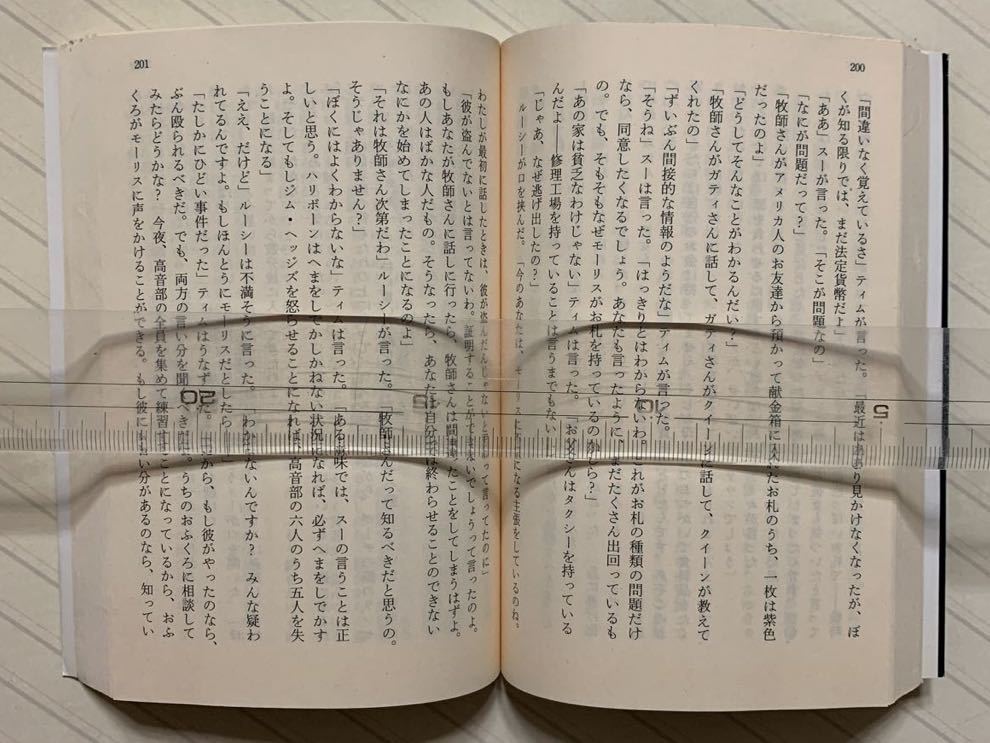 200
「間違いなく覚えているさ」ティムが言った。「最近はあまり見かけなくなったが、ぼ
くが知る限りでは、まだ法定貨幣だよ」
「ああ」スーが言った。「そこが問題なの」
「なにが問題だって?」
「牧師さんがアメリカ人のお友達から預かって献金箱に入れたお札のうち、一枚は紫色
だったのよ」
「どうしてそんなことがわかるんだい?」
「牧師さんがガティさんに話して、ガティさんがクイーンに話して、クイーンが教えて
くれたの」
「ずいぶん間接的な情報のようだな」ティムが言った。
「そうね」スーは言った。「はっきりとはわからないわ。これがお札の種類の問題だけ
なら、同意したくなるでしょう。あなたも言ったように、まだたくさん出回っているも
の。でも、そもそもなぜモーリスがお札を持っているのかしら?」
「あの家は貧乏なわけじゃない」ティムは言った。「お父さんはタクシーを持っている
んだよ——修理工場を持っていることは言うまでもない」
「じゃあ、なぜ逃げ出したの?」
ルーシーが口を挟んだ。「今のあなたは、モーリスに不利になる主張をしているのね。
201
わたしが最初に話したときは、彼が盗んだんじゃないと言って言ってたのに」
「彼が盗んでないとは言ってないわ。証明することができないでしょうって言ったのよ。
もしあなたが牧師さんに話しに行ったら、牧師さんは間違ったことをしてしまうはずよ。
あの人はばかな人だもの。そうなったら、あなたは自分で終わらせることのできない
なにかを始めてしまったことになるのよ」
「それは牧師さん次第だわ」ルーシーが言った。「牧師さんだって知るべきだと思うの。
そうじゃありません?」
「ぼくにはよくわからないな」ティムは言った。「ある意味では、スーの言うことは正
しいと思う。ハリボーンはへまをしでかしかねない状況になれば、必ずへまをしでかす
よ。そしてもしジム・ヘッジズを怒らせることになれば、高音部の六人のうち五人を失
うことになる」
「ええ、だけど」ルーシーは不満そうに言った。「わからないんですか? みんな疑わ
れてるんですよ。もしほんとうにモーリスだとしたら」
「たしかにひどい事件だった」ティムはうなずいた。「だから、もし彼がやったのなら、
ぶん殴られるべきだ。でも、両方の言い分を聞くべきだ。うちのおふくろに相談して
みたらどうかな? 今夜、高音部の全員を集めて練習することになっているから、おふ
くろがモーリスに声をかけることができる。もし彼に言い分があるのなら、知ってい
5
10
15
20